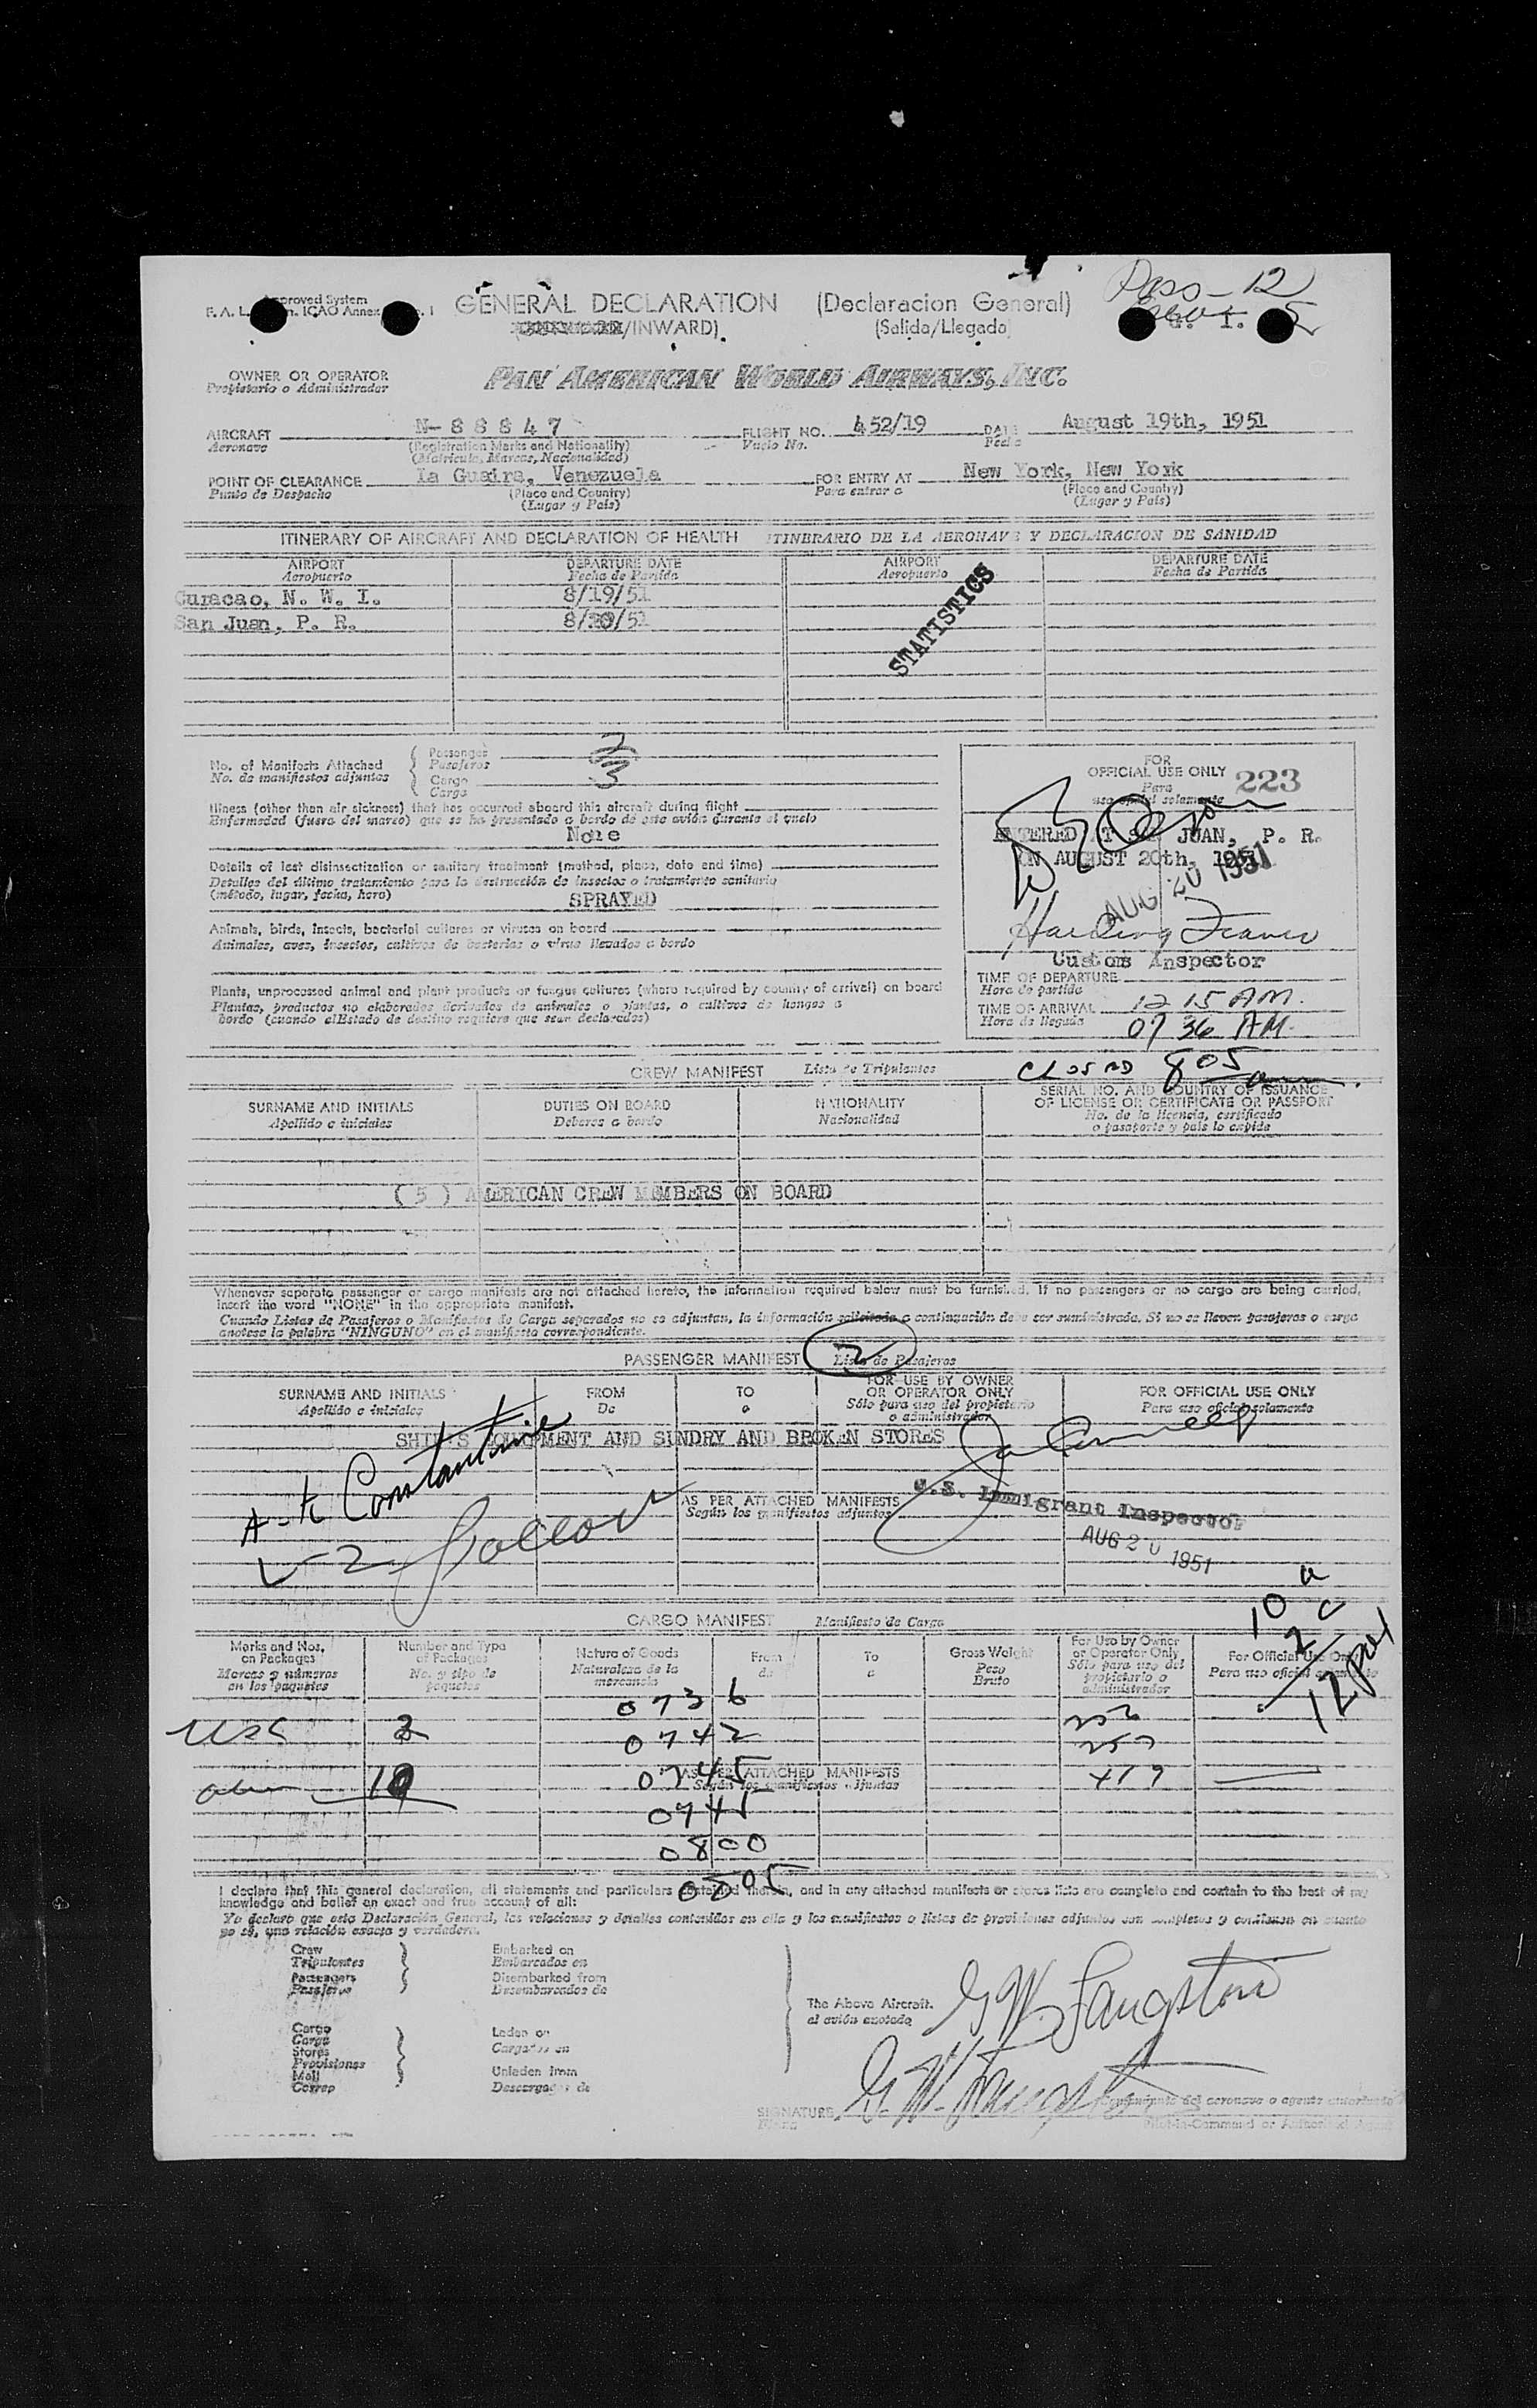 Pass - 12
GENERAL DECLARATION (Declaracion General)
/INWARD) (Salida/Llegada)
OWNER OR OPERATOR
Propietario o Administrador
PAN AMERICAN WORLD AIRWAYS, INC.
AIRCRAFT N- 8 8 8 4 7 FLIGHT NO. 452/19 DATE August 19th, 1951
Aeronave (Registration Marks and Nationality) Vuelo No. Fecha
(Matricula, Marcas, Nacionalidad)
POINT OF CLEARANCE La Guaira, Venezuela FOR ENTRY AT New York, New York
Punto de Despacho (Place and Country) Para entrar a (Place and Country)
(Lugar y Pais) (Lugar y Pais)
ITINERARY OF AIRCRAFT AND DECLARATION OF HEALTH ITINERARIO DE LA AERONAVE Y DECLARACION DE SANIDAD
AIRPORT DEPARTURE DATE AIRPORT DEPARTURE DATE
Aeropuerto Fecha de Partida Aeropuerto Fecha de Partida
Curacao, N. W. I. 8/19/51
San Juan, P. R. 8/20/51
STATISTICS
No. of Manifests Attached
No. de manifiestos adjuntos
Passenger
Pasajeros
Cargo
Carga
3
Illness (other than air sickness) that has occurred aboard this aircraft during flight
Enfermedad (fuera del mareo) que se ha presentado a bordo de este avión durante el vuelo
None
Details of last disinsectization or sanitary treatment (method, place, date and time)
Detalles del último tratamiento para la destrucción de insectos o tratamiento sanitario
(método, lugar, fecha, hora)
SPRAYED
Animals, birds, insects, bacterial cultures or viruses on board
Animales, aves, insectos, cultivos de bacterias o virus llevados a bordo
Plants, unprocessed animal and plant products or fungus cultures (where required by country of arrival) on board
Plantas, productos no elaborados derivados de animales o plantas, o cultivos de hongos a
bordo (cuando elEstado de destino requiera que sean declarados)
FOR
OFFICIAL USE ONLY 223
Para
uso oficial solamente
ENTERED AT SAN JUAN, P. R.
ON AUGUST 20th, 1951
AUG 20 1951
Customs Inspector
TIME OF DEPARTURE
Hora de partida 12 15 AM.
TIME OF ARRIVAL
Hora de llegada 07 36 AM.
CLOSED 805 am.
CREW MANIFEST Lista de Tripulantes
SURNAME AND INITIALS DUTIES ON BOARD NATIONALITY SERIAL NO. AND COUNTRY OF ISSUANCE
OF LICENSE OR CERTIFICATE OR PASSPORT
Apellido e iniciales Deberes a bordo Nacionalidad No. de la licencia, certificado
o pasaporte y pais lo expide
( 5 ) AMERICAN CREW MEMBERS ON BOARD
Whenever separate passenger or cargo manifests are not attached hereto, the information required below must be furnished. If no passengers or no cargo are being carried,
insert the word "NONE" in the appropriate manifest.
Cuando Listas de Pasajeros o Manifiestos de Carga separados no se adjuntan, la información solicitada a continuación debe ser suministrada. Si no se lleven pasajeros o carga
anotese la palabra "NINGUNO" en el manifiesto correspondiente.
PASSENGER MANIFEST 2 Lista de Pasajeros
SURNAME AND INITIALS FROM TO FOR USE BY OWNER
OR OPERATOR ONLY FOR OFFICIAL USE ONLY
Apellido e iniciales De a Sólo para uso del propietario
o administrador Para uso oficial solamente
SHIP'S EQUIPMENT AND SUNDRY AND BROKEN STORES
Constantine
L-2
AS PER ATTACHED MANIFESTS
Según los manifiestos adjuntos
U.S. Immigrant Inspector
AUG 20 1951
10 a
2 c
12
CARGO MANIFEST Manifiesto de Carga
Marks and Nos.
on Packages
Marcas y números
en los paquetes
Number and Type
of Packages
No. y tipo de
paquetes
Nature of Goods
Naturaleza de la
mercancia
From
de
To
a
Gross Weight
Peso
Bruto
For Use by Owner
or Operator Only
Sólo para uso del
propietario o
administrador
For Official Use Only
Para uso oficial solamente
0736
USC 2 0742
10 0745
AS PER ATTACHED MANIFESTS
Según los manifiestos adjuntos
0745
0800
0805
I declare that this general declaration, all statements and particulars contained therein, and in any attached manifests or stores lists are complete and contain to the best of my
knowledge and belief an exact and true account of all:
Yo declaro que esta Declaración General, las relaciones y detalles contenidos en ella y los manifiestos o listas de provisiones adjuntos son completos y contienen en cuanto
yo sé, una relación exacta y verdadera.
Crew
Tripulantes
Passengers
Pasajeros
Embarked on
Embarcados en
Disembarked from
Desembarcados de
The Above Aircraft.
el avión anotado
Cargo
Carga
Stores
Provisiones
Mail
Correo
Laden on
Cargados en
Unladen from
Descargados de
SIGNATURE
Firma
Comandante del aeronave o agente autorizado
Pilot-in-Command or Authorized Agent